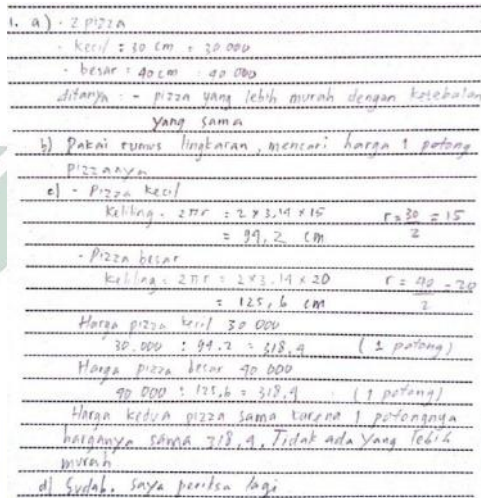 1. a) · 2 pizza
- kecil : 30 cm = 30.000
- besar : 40 cm : 40 000
ditanya : - pizza yang lebih murah dengan ketebalan
yang sama
b) Pakai rumus lingkaran, mencari harga 1 potong
pizzanya
c) - Pizza kecil
Keliling = 2πr = 2 x 3,14 x 15 r = 30/2 = 15
= 94,2 cm
- Pizza besar
Keliling = 2πr = 2 x 3.14 x 20 r = 40/2 = 20
= 125,6 cm
Harga pizza kecil 30 000
30.000 : 94.2 = 318.4 (1 potong)
Harga pizza besar 40 000
40 000 : 125,6 = 318,4 (1 potong)
Harga kedua pizza sama karena 1 potongnya
harganya sama 318,4. Tidak ada yang lebih
murah
d) Sudah. saya periksa lagi